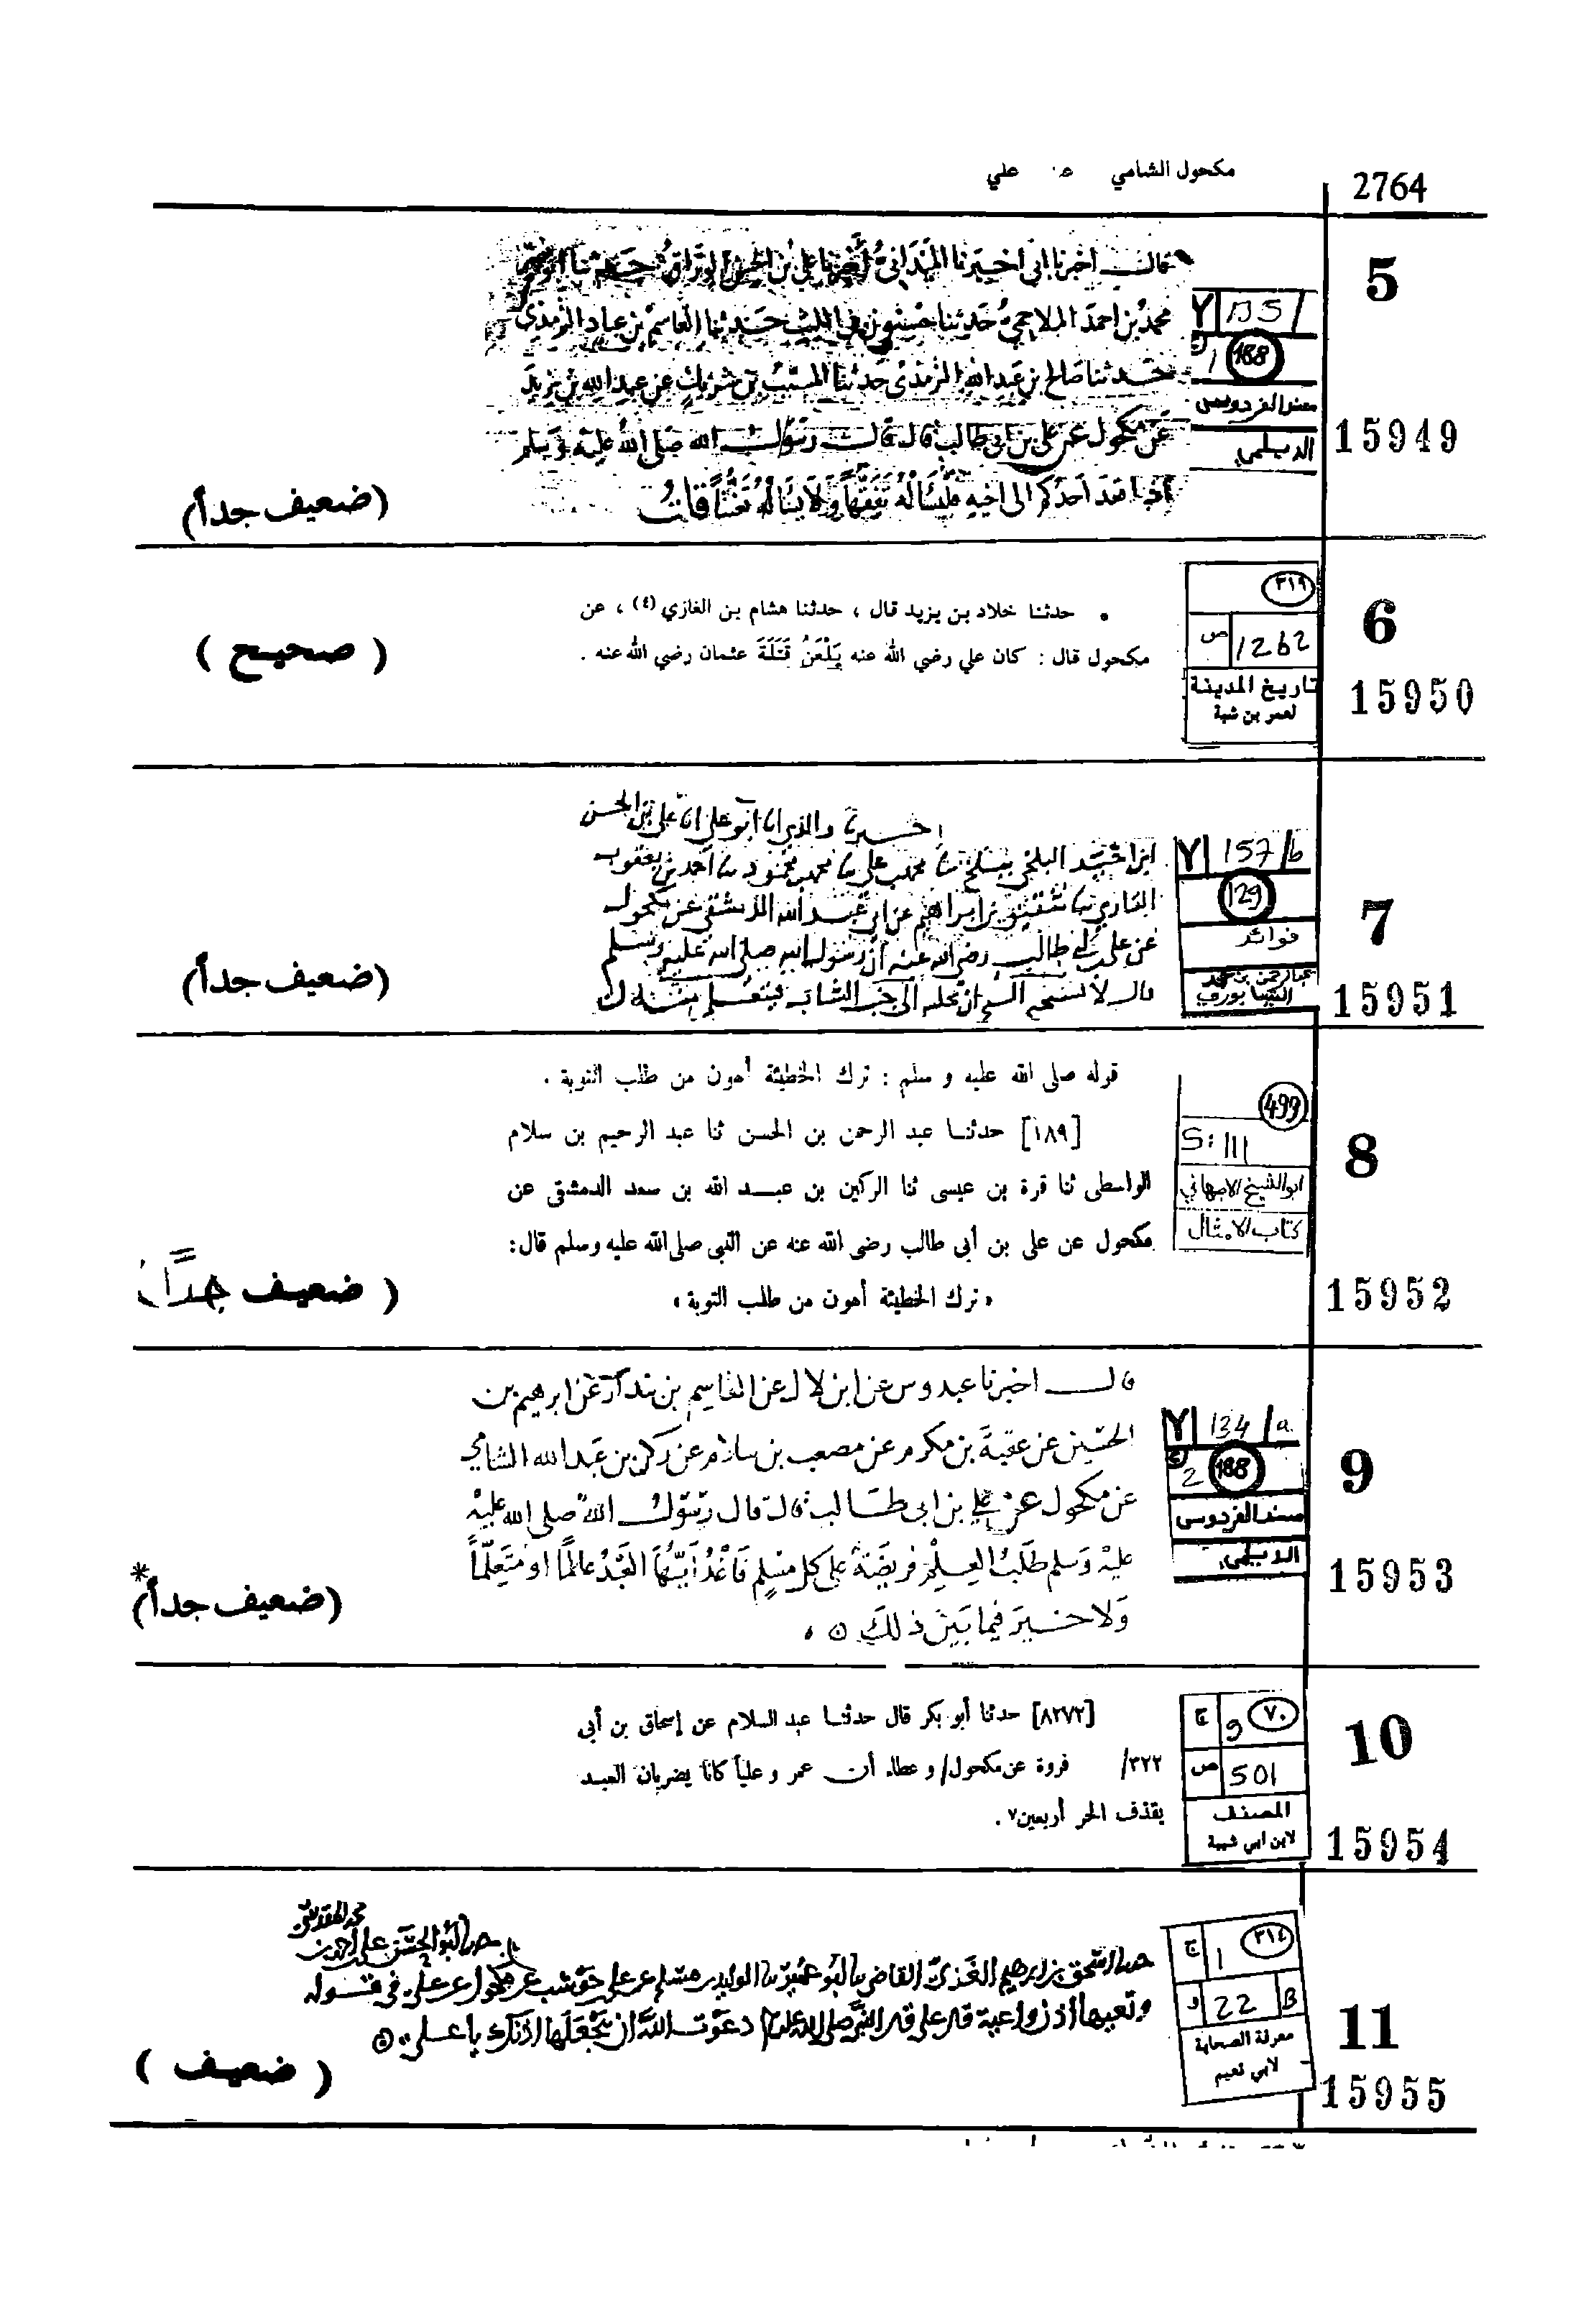 2764
مكحول الشامي علي
5
15949
188
مسند الفردوس
الديلمي
قالــ اخبرنا ابي اخبرنا الميداني
محمد بن احمد الملاحمي حدثنا القاسم بن عباد الترمذي
حدثنا صالح بن عبد الله الترمذي حدثنا المسيب بن شريك عن عبد الله بن يزيد
عن مكحول عن علي بن ابي طالب قال قال رسول الله صلى الله عليه وسلم
اذا قعد احدكم الى اخيه فليساله تفقها ولا يساله تعنتا
(ضعيف جداً)
6
15950
٣١٩
ص 1262
تاريخ المدينة
لعمر بن شبة
• حدثنا خلاد بن يزيد قال ، حدثنا هشام بن الغازي (٤) ، عن
مكحول قال : كان علي رضي الله عنه يَلْعَنُ قَتَلَةَ عثمان رضي الله عنه .
( صحيح )
7
15951
157/b
129
فوائد
عبد الرحمن بن محمد
النيسابوري
اخبرنا والدي انا ابو علي انا علي بن الحسن
البلخي محمد بن علي محمد بن محمود احمد بن يعقوب
شقيق بن ابراهيم عن ابي عبد الله الدمشقي عن مكحول
عن علي بن ابي طالب رضي الله عنه ان رسول الله صلى الله عليه وسلم
قال لا يستحي الشيخ ان يجلس الى جنب الشاب فيتعلم منه
(ضعيف جداً)
8
15952
499
S: 111
ابو الشيخ الاصبهاني
كتاب الامثال
قوله صلى الله عليه و سلم : ترك الخطيئة أهون من طلب التوبة .
[١٨٩] حدثنــا عبد الرحمن بن الحسن ثنا عبد الرحيم بن سلام
الواسطى ثنا قرة بن عيسى ثنا الركين بن عبــد الله بن سعد الدمشقى عن
مكحول عن على بن أبى طالب رضى الله عنه عن النبى صلى الله عليه وسلم قال:
« ترك الخطيئة أهون من طلب التوبة »
( ضعيف جداً )
9
15953
134/a
2 188
مسند الفردوس
الديلمي
قالــ اخبرنا عبدوس عن ابن لال عن القاسم بن بندار عن ابرهيم بن
الحسين عن عقبة بن مكرم عن مصعب بن سلام عن ركن بن عبد الله الشامي
عن مكحول عن علي بن ابي طالب قال قال رسول الله صلى الله عليه
عليه وسلم طلب العلم فريضة على كل مسلم فاغد ايها العبد عالما او متعلما
ولا خير فيما بين ذلك ٥
*(ضعيف جداً)
10
15954
ج 9 ٧٠
ص 501
المصنف
لابن ابي شيبة
[٨٢٧٢] حدثنا أبو بكر قال حدثنــا عبد السلام عن إسحاق بن أبى
٣٢٢/ فروة عن مكحول/ و عطاء أن عمر و علياً كانا يضربان العبد
يقذف الحر أربعين٧ .
11
15955
ج 1 ٣١٤
و 22 B
معرفة الصحابة
لابي نعيم
اسحق بن ابراهيم الغزي القاضي ابو عمير الوليد بن مسلم عن علي بن حوشب عن مكحول عن علي في قوله
وتعيها اذن واعية قال علي قال النبي صلى الله عليه دعوت الله ان يجعلها اذنك يا علي
( ضعيف )